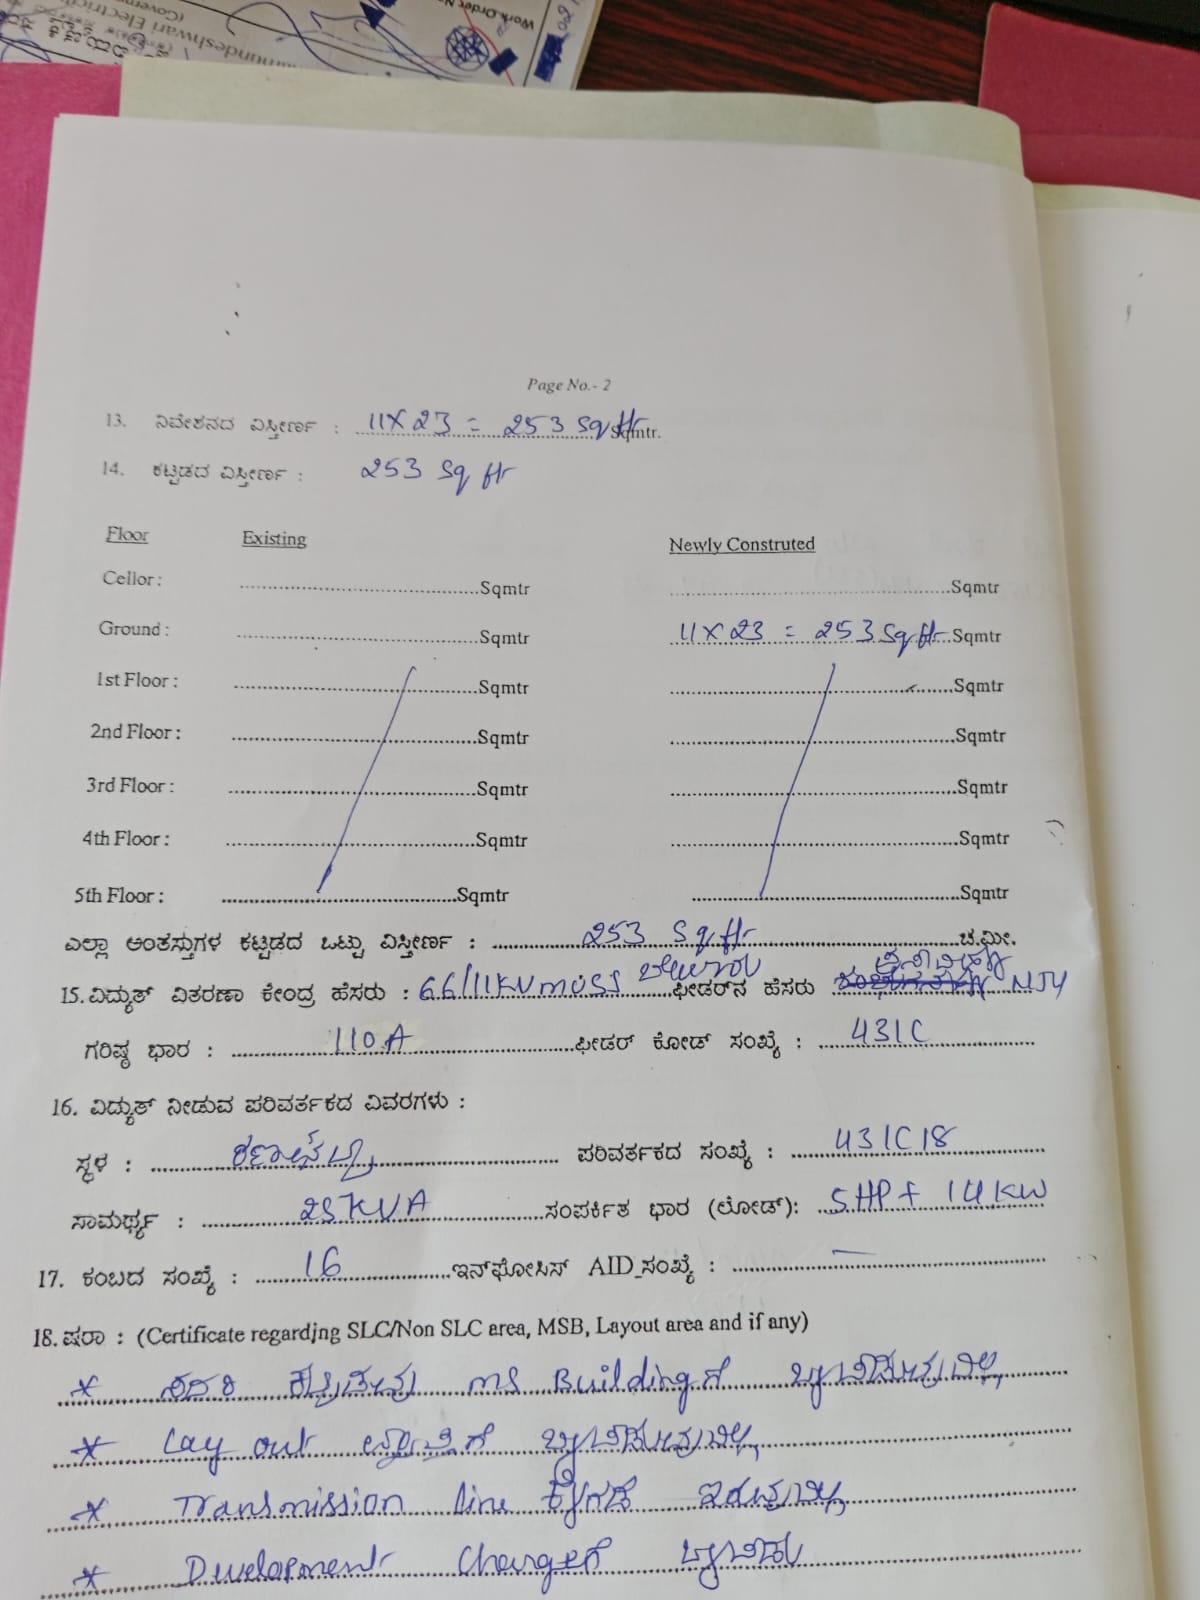 Work Order No
Page No.- 2
13. ನಿವೇಶನದ ವಿಸ್ತೀರ್ಣ : 11X23 = 253 Sq ft Sqmtr.
14. ಕಟ್ಟಡದ ವಿಸ್ತೀರ್ಣ : 253 Sq ft
Floor Existing Newly Constructed
Cellor : Sqmtr Sqmtr
Ground : Sqmtr 11X23 = 253 Sq ft Sqmtr
1st Floor : Sqmtr Sqmtr
2nd Floor : Sqmtr Sqmtr
3rd Floor : Sqmtr Sqmtr
4th Floor : Sqmtr Sqmtr
5th Floor : Sqmtr Sqmtr
ಎಲ್ಲಾ ಅಂತಸ್ತುಗಳ ಕಟ್ಟಡದ ಒಟ್ಟು ವಿಸ್ತೀರ್ಣ : 253 Sq ft ಚ.ಮೀ.
15. ವಿದ್ಯುತ್ ವಿತರಣಾ ಕೇಂದ್ರ ಹೆಸರು : 66/11KV MUSS ಬೇಲೂರು ಫೀಡರ್‌ನ ಹೆಸರು NJY
ಗರಿಷ್ಠ ಭಾರ : 110A ಫೀಡರ್ ಕೋಡ್ ಸಂಖ್ಯೆ : 431C
16. ವಿದ್ಯುತ್ ನೀಡುವ ಪರಿವರ್ತಕದ ವಿವರಗಳು :
ಸ್ಥಳ : ಪರಿವರ್ತಕದ ಸಂಖ್ಯೆ : 431C18
ಸಾಮರ್ಥ್ಯ : 25KVA ಸಂಪರ್ಕಿತ ಭಾರ (ಲೋಡ್): 5HP+ 14KW
17. ಕಂಬದ ಸಂಖ್ಯೆ : 16 ಇನ್‌ಫೋಸಿಸ್ AID ಸಂಖ್ಯೆ : —
18. ಷರಾ : (Certificate regarding SLC/Non SLC area, MSB, Layout area and if any)
* ಸದರಿ ಕಟ್ಟಡವು MS Buildingಗೆ ಒಳಪಡುವುದಿಲ್ಲ
* Lay out ವ್ಯಾಪ್ತಿಗೆ ಒಳಪಡುವುದಿಲ್ಲ
* Transmission line ಕೆಳಗಡೆ ಇರುವುದಿಲ್ಲ
* Development Chargeಗೆ